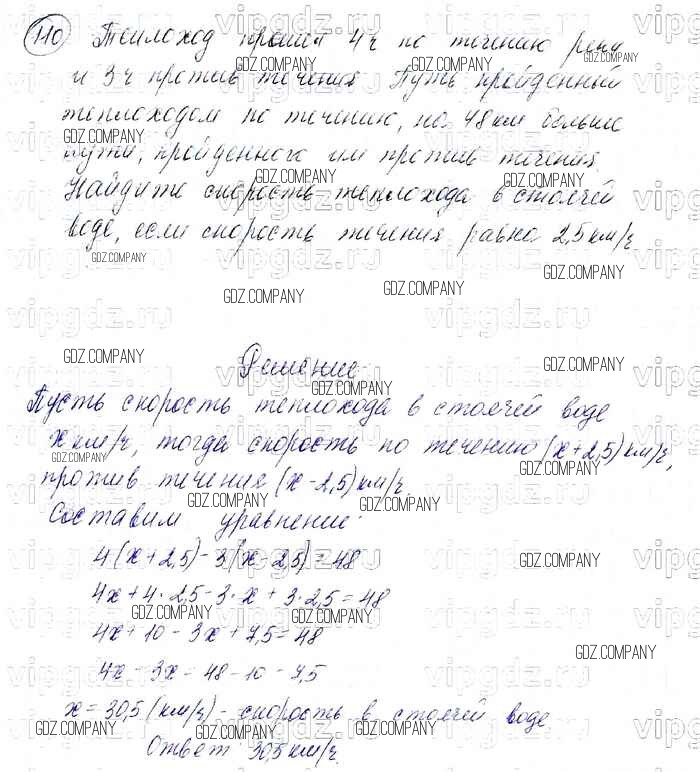 110 Теплоход прошел 4ч по течению реки
и 3ч против течения. Путь, пройденный
теплоходом по течению, на 48км больше
пути, пройденного им против течения.
Найдите скорость теплохода в стоячей
воде, если скорость течения равна 2,5км/ч
Решение
Пусть скорость теплохода в стоячей воде
x км/ч, тогда скорость по течению (x+2,5)км/ч,
против течения (x-2,5)км/ч.
Составим уравнение:
4(x+2,5)-3(x-2,5)=48
4x+4·2,5-3·x+3·2,5=48
4x+10-3x+7,5=48
4x-3x=48-10-7,5
x=30,5(км/ч)-скорость в стоячей воде
Ответ: 30,5км/ч.
GDZ.COMPANY
vipgdz.ru